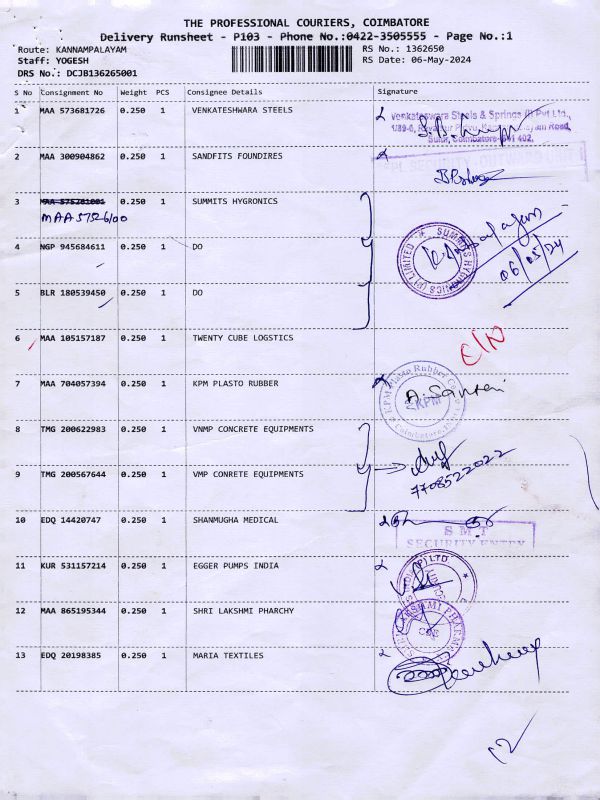 THE PROFESSIONAL COURIERS, COIMBATORE
Delivery Runsheet - P103 - Phone No.:0422-3505555 - Page No.:1
Route: KANNAMPALAYAM RS No.: 1362650
Staff: YOGESH RS Date: 06-May-2024
DRS No.: DCJB136265001
S No Consignment No Weight PCS Consignee Details Signature
1 MAA 573681726 0.250 1 VENKATESHWARA STEELS
Venkateswara Steels & Springs (I) Pvt Ltd.,
2 MAA 300904862 0.250 1 SANDFITS FOUNDIRES
3 MAA 575281001 0.250 1 SUMMITS HYGRONICS
MAA 57526100
4 NGP 945684611 0.250 1 DO
SUMMITS HYGRONICS (P) LIMITED
06/05/24
5 BLR 180539450 0.250 1 DO
6 MAA 105157187 0.250 1 TWENTY CUBE LOGSTICS
7 MAA 704057394 0.250 1 KPM PLASTO RUBBER
KPM Plasto Rubber
KPM
8 TMG 200622983 0.250 1 VNMP CONCRETE EQUIPMENTS
9 TMG 200567644 0.250 1 VMP CONRETE EQUIPMENTS
7708522022
10 EDQ 14420747 0.250 1 SHANMUGHA MEDICAL
S M T
SECURITY ENTRY
11 KUR 531157214 0.250 1 EGGER PUMPS INDIA
12 MAA 865195344 0.250 1 SHRI LAKSHMI PHARCHY
13 EDQ 20198385 0.250 1 MARIA TEXTILES
12